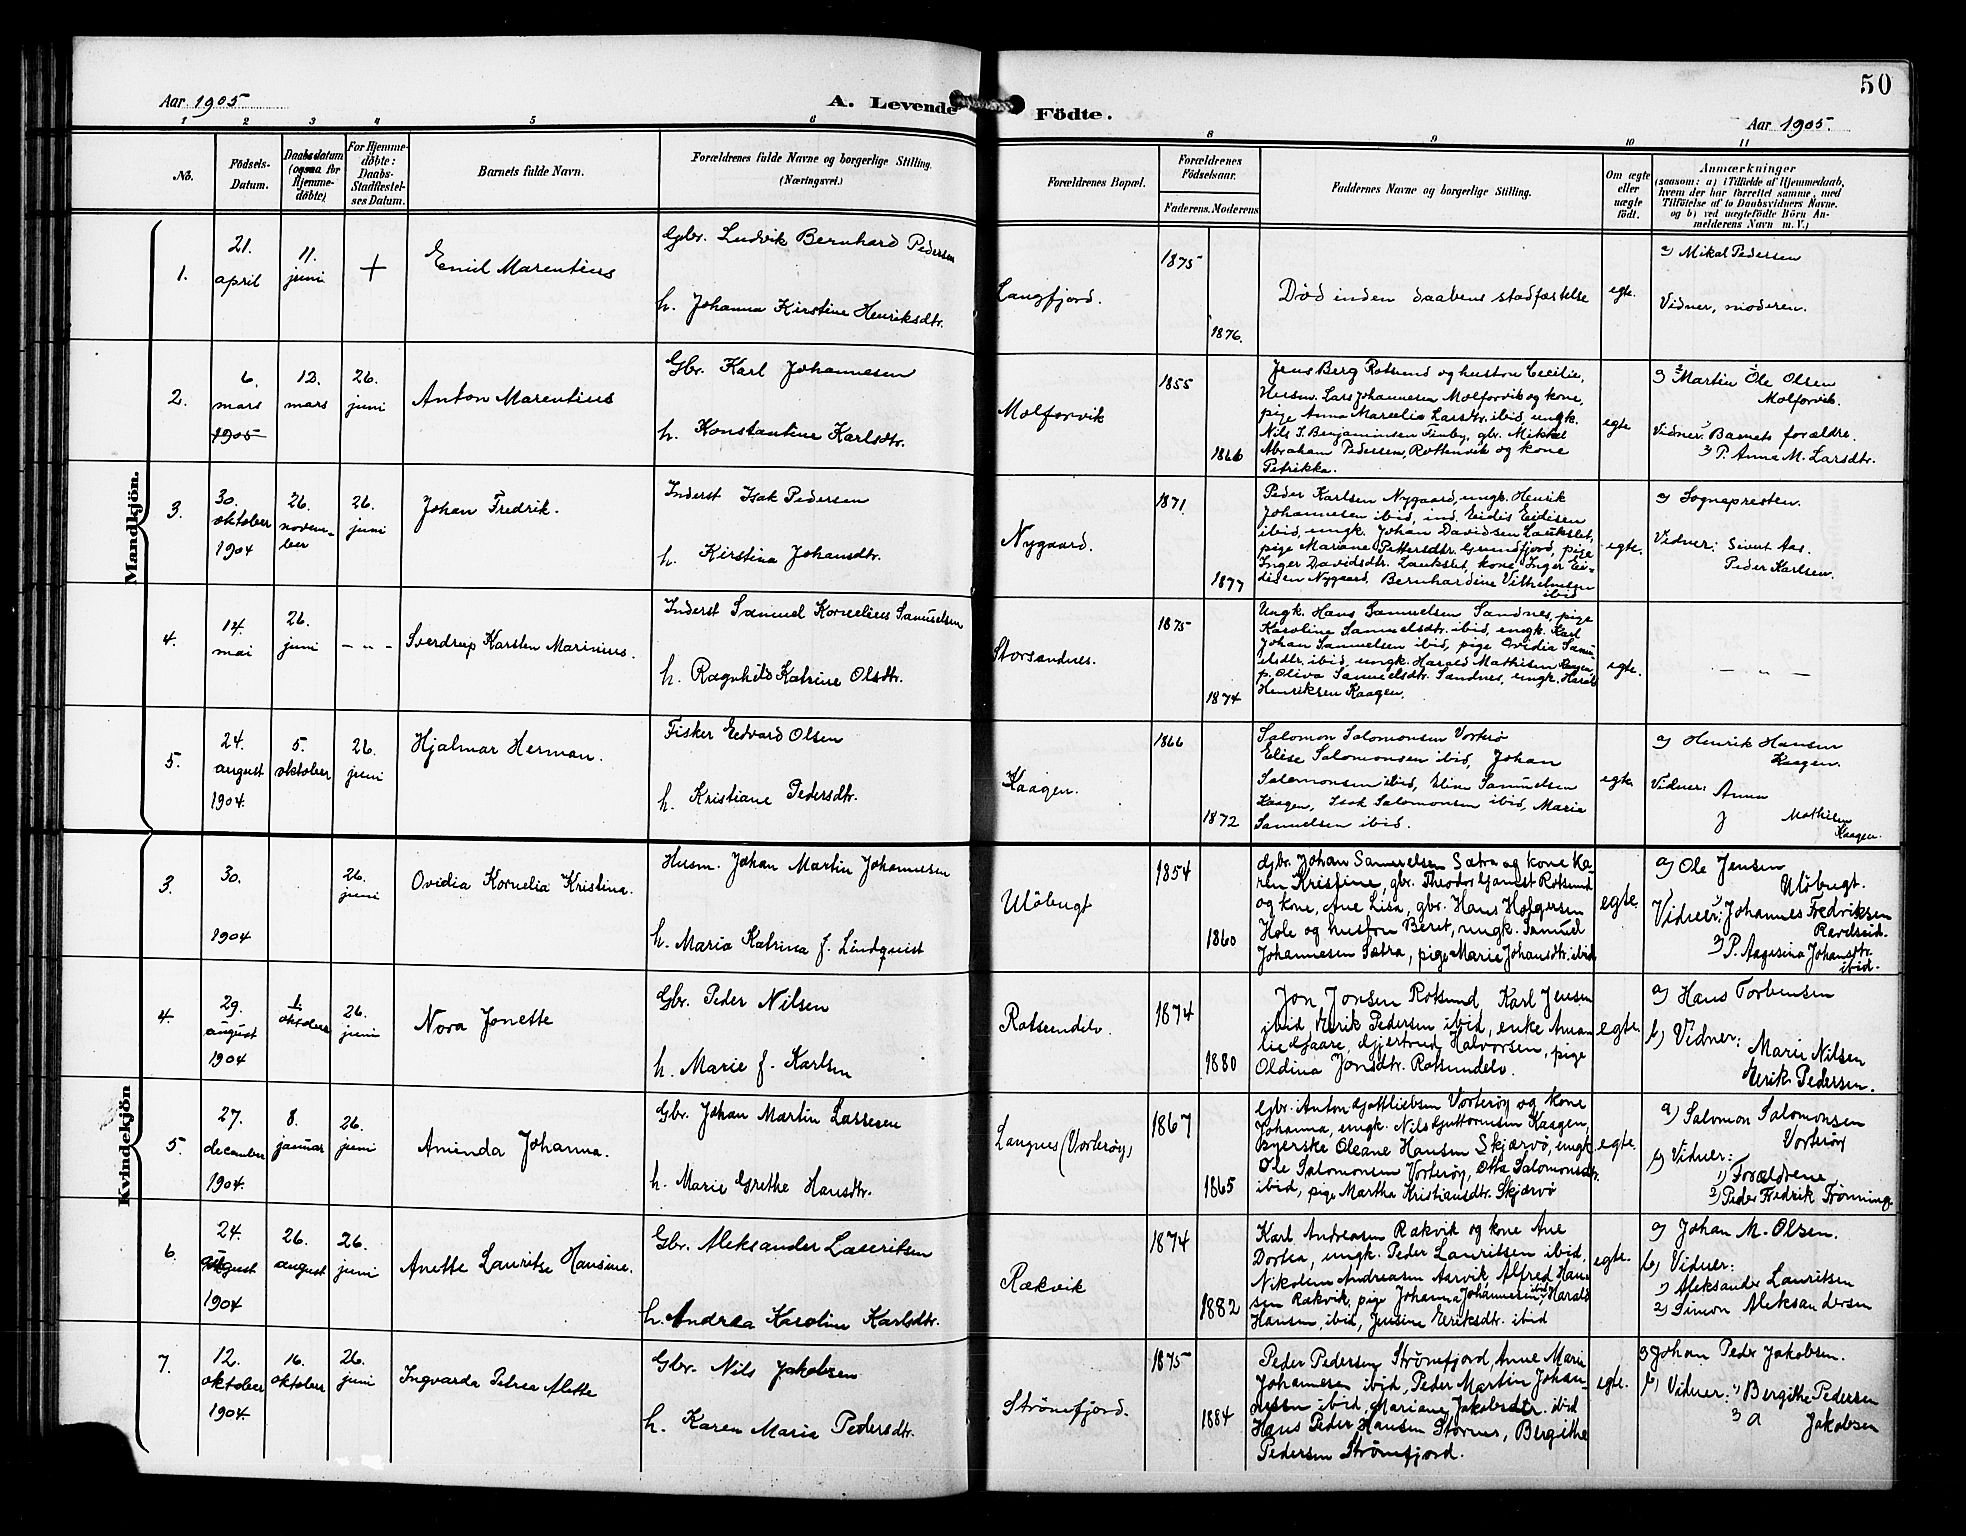 50
Aar 1905
A. Levende Födte.
Aar 1905.
1 2 3 4 5 6 8 9 10 11
No.
Födsels-
Datum.
Daabsdatum
(ogsaa for
Hjemme-
døbte)
For Hjemme-
døbte:
Daabs-
Stadfæstel-
ses Datum.
Barnets fulde Navn.
Forældrenes fulde Navne og borgerlige Stilling.
(Næringsvei.)
Forældrenes Bopæl.
Forældrenes
Födselsaar.
Faderens. Moderens
Faddernes Navne og borgerlige Stilling.
Om ægte
eller
uægte
födt.
Anmærkninger
(saasom: a) i Tilfælde af Hjemmedaab,
hvem der har forrettet samme, med
Tilföielse af to Daabsvidners Navne.
og b) ved uægtefödte Börn An-
melderens Navn m. V.)
Mandkjön.
1.
21.
april
11.
juni
+
Emil Marentius
Gbr. Ludvik Bernhard Pedersen
h. Johanna Kirstine Henriksdtr.
Langfjord.
1875
1876.
Død inden daabens stadfæstelse
egte.
a) Mikal Pedersen
Vidner, moderen.
2.
6.
mars
1905
12.
mars
26.
juni
Anton Marentius
Gbr. Karl Johannesen
h. Konstantine Karlsdtr.
Molforvik
1855
1866
Jens Berg Rotsund og hustru Cecilie,
Husm. Lars Johannesen Molforvik og kone,
pige Anna Marcelia Larsdtr. ibid, ungk.
Nils J. Benjaminsen Finby, gbr. Mikkel
Abraham Pedersen, Rottenvik og kone
Petrikka.
egte
a) Martin Ole Olsen
Molforvik.
Vidner: 1) Barnets forældre.
2) P. Anna M. Larsdtr.
3.
30.
oktober
1904
26.
novem-
ber
26.
juni
Johan Fredrik.
Inderst Isak Pedersen
h. Kirstina Johansdtr.
Nygaard.
1871.
1877
Peder Karlsen Nygaard, ungk. Henrik
Johannesen ibid, ind. Eidis Eidisen
ibid, ungk. Johan Davidsen Laukslet,
pige Mariane Pettersdtr. Grundfjord, pige
Inger Davidsdtr. Laukslet, kone Inger Ei-
disen Nygaard, Bernhardine Vilhelmsen
ibid
egte.
a) Sognepresten.
Vidner: Sivert Aas.
Peder Karlsen.
4.
14.
mai
26.
juni
– „ –
Sverdrup Karsten Marinius.
Inderst Samuel Kornelius Samuelsen
h. Ragnhild Katrine Olsdtr.
Storsandnes.
1875
1874
Ungk. Hans Samuelsen Sandnes, pige
Karoline Samuelsdtr. ibid, ungk. Karl
Johan Samuelsen ibid, pige Ovidia Samu-
elsdtr. ibid, ungk. Harald Mathisen Kaagen,
p. Oliva Samuelsdtr. Sandnes, ungk. Harald
Henriksen Kaagen.
egte.
– „ –
5.
24.
august
1904.
5.
oktober
26.
juni
Hjalmar Herman.
Fisker Edvard Olsen
h. Kristiane Pedersdtr.
Kaagen.
1866
1872
Salomon Salomonsen Vorterø
Elise Salomonsen ibid, Johan
Salomonsen ibid, Elise Samuelsen
Kaagen, Isak Salomonsen ibid, Marie
Samuelsen ibid.
egte.
a) Henrik Hansen
Kaagen.
Vidner: Anna
J Mathisen
Kaagen.
Kvindekjön
3.
30.
1904
26.
juni
Ovidia Kornelia Kristina.
Husm. Johan Martin Johannesen
h. Maria Katrina f. Lindquist
Uløbugt
1854
1860
Gbr. Johan Samuelsen Sætra og kone Ka-
ren Kristine, gbr. Theodor Gamst Rotsund
og kone, Ane Lisa, gbr. Hans Holgersen
Hole og hustru Beret, ungk. Samuel
Johannesen Sætra, pige Marie Johansdtr. ibid
egte.
a) Ole Jensen
Uløbugt.
Vidner: 1) Johannes Fredriksen
Ravelseid.
2) P. Aagesina Johansdtr.
ibid.
4.
29.
august
1904
1.
oktober
26.
juni
Nora Jonette
Gbr. Peder Nilsen
h. Marie f. Karlsen
Rotsundelv.
1874
1880
Jon Jonsen Rotsund, Karl Jensen
ibid, Erik Pedersen ibid, enke Ama-
lie Gaare, Gjertrud Halvorsen, pige
Oldina Jonsdtr. Rotsundelv.
egte.
a) Hans Torbensen
b) Vidner: Marie Nilsen
Erik Pedersen.
5.
27.
december
1904.
8.
januar
26.
juni
Aminda Johanna.
Gbr. Johan Martin Lassesen
h. Marie Grethe Hansdtr.
Langnes (Vorterøy)
1867
1865
Gbr. Anton Gottliebsen Vorterøy og kone
Johanna, ungk. Nils Guttormsen Kaagen,
Byerske Oleane Hansen Skjærvø, ungk.
Ole Salomonsen Vorterøy, Otta Salomonsdtr.
ibid, pige Martha Kristiansdtr. Skjærvø
egte.
a) Salomon Salomonsen
Vorterøy
b) Vidner:
1) Forældrene
2) Peder Fredrik Frønning
6.
24.
august
1904
26.
august
26.
juni
Anette Lauritse Hansine.
Gbr. Aleksander Lauritsen
h. Andrea Karoline Karlsdtr.
Rækvik
1874
1882
Karl Andreasen Rækvik og kone Ane
Dortea, ungk. Peder Lauritsen ibid,
Nikolem Andreasen Aarvik, Alfred Han-
sen Rækvik, pige Johanna Johannesen ibid, Harald
Hansen, ibid, Jensine Eriksdtr. ibid
egte.
a) Johan M. Olsen.
b) Vidner:
1) Aleksander Lauritsen
2) Simon Aleksandersen
7.
12.
oktober
1904.
16.
oktober
26.
juni
Ingvarda Petrea Alette
Gbr. Nils Jakobsen
h. Karen Maria Pedersdtr.
Strømfjord.
1875
1884
Peder Pedersen Strømfjord, Anne Marie
Johannesen ibid, Peder Martin Johan-
nesen ibid, Mariane Jakobsdtr. ibid
Hans Peder Hansen Stornes, Bergithe
Pedersen Strømfjord.
egte.
a) Johan Peder Jakobsen.
b) Vidner: 1) Bergithe Pedersen
2) A Jakobsen